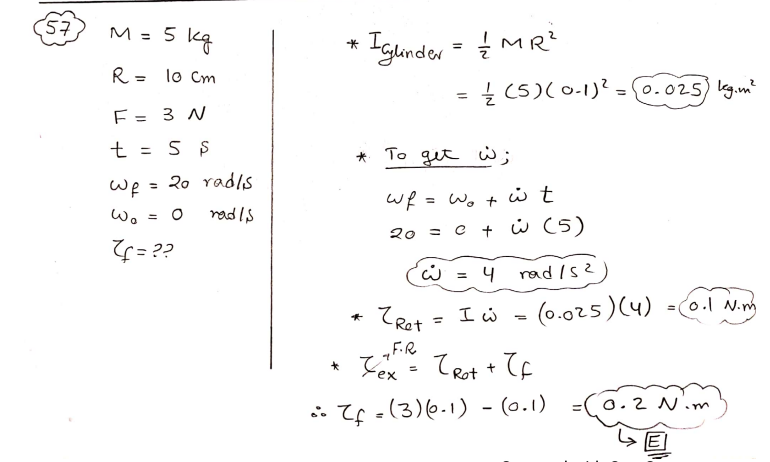 57
M = 5 kg
R = 10 cm
F = 3 N
t = 5 s
ωf = 20 rad/s
ω₀ = 0 rad/s
τf = ??
* I Cylinder = 1/2 MR²
= 1/2 (5)(0.1)² = 0.025 kg.m²
* To get ω̇;
ωf = ω₀ + ω̇ t
20 = 0 + ω̇ (5)
ω̇ = 4 rad/s²
* τRot = I ω̇ = (0.025)(4) = 0.1 N.m
* τex → F.R = τRot + τf
∴ τf = (3)(0.1) - (0.1) = 0.2 N.m
↳ E